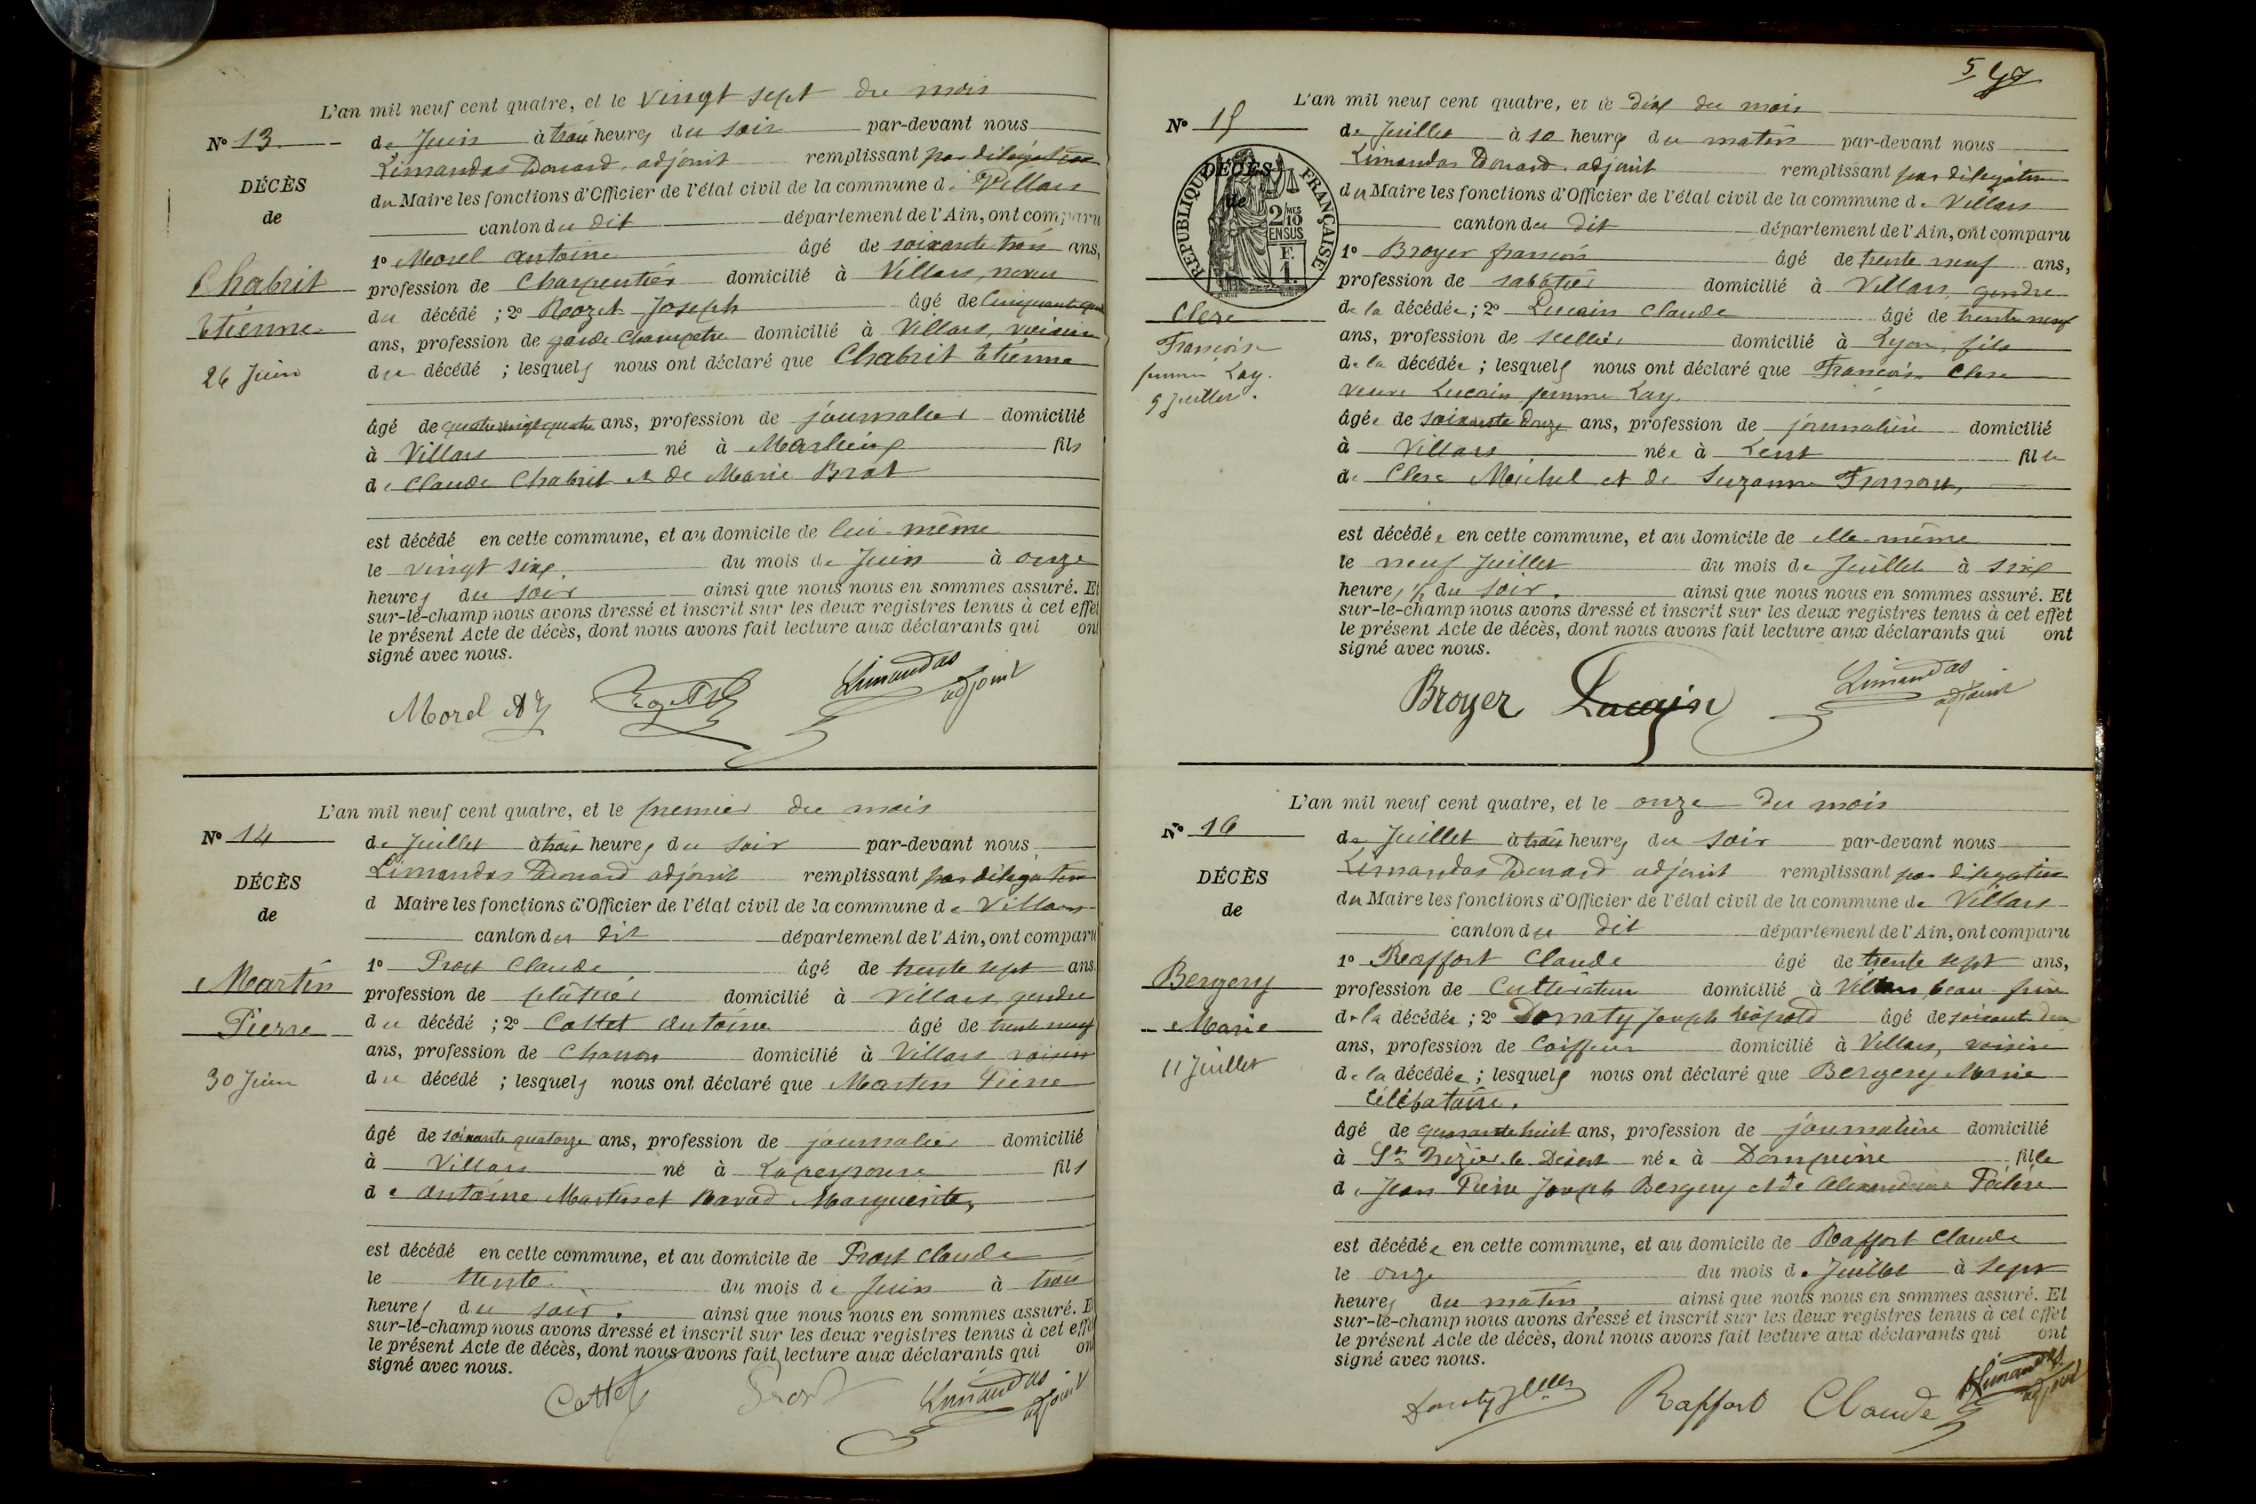 L'an mil neuf cent quatre, et le vingt sept du mois
N° 13
de Juin à trois heures du soir par-devant nous
Limandas Donard adjoint remplissant par délégation
DÉCÈS
du Maire les fonctions d'Officier de l'état civil de la commune de Villars
de
canton du dit département de l'Ain, ont comparu
1° Morel Antoine âgé de soixante trois ans,
Chabrit
profession de Charpentier domicilié à Villars, neveu
du décédé ; 2° Rozet Joseph âgé de
Etienne
ans, profession de garde champetre domicilié à Villars, voisin
26 Juin
du décédé ; lesquels nous ont déclaré que Chabrit Etienne
âgé de quatre vingt quatre ans, profession de journalier domicilié
à Villars né à Marlieux fils
de Claude Chabrit et de Marie Brat
est décédé en cette commune, et au domicile de lui-même
le vingt six du mois de Juin à onze
heures du soir ainsi que nous nous en sommes assuré. Et
sur-le-champ nous avons dressé et inscrit sur les deux registres tenus à cet effet
le présent Acte de décès, dont nous avons fait lecture aux déclarants qui ont
signé avec nous.
Morel
Limandas
adjoint
L'an mil neuf cent quatre, et le premier du mois
N° 14
de Juillet à trois heures du soir par-devant nous
Limandas Donard adjoint remplissant par délégation
DÉCÈS
d Maire les fonctions d'Officier de l'état civil de la commune de Villars
de
canton du dit département de l'Ain, ont comparu
1° Prost Claude âgé de trente sept ans
Martin
profession de plâtrier domicilié à Villars, gendre
du décédé ; 2° Cottet Antoine âgé de trente neuf
Pierre
ans, profession de Charron domicilié à Villars voisin
30 Juin
du décédé ; lesquels nous ont déclaré que Martin Pierre
âgé de soixante quatorze ans, profession de journalier domicilié
à Villars né à Lapeyrouse fils
de Antoine Martin et Mavad Marguerite,
est décédé en cette commune, et au domicile de Prost Claude
le trente du mois de Juin à trois
heures du soir. ainsi que nous nous en sommes assuré. E
sur-le-champ nous avons dressé et inscrit sur les deux registres tenus à cet effet
le présent Acte de décès, dont nous avons fait lecture aux déclarants qui on
signé avec nous.
Cottet Prost Limandas
adjoint
5
L'an mil neuf cent quatre, et le dix du mois
N° 15
de Juillet à 10 heures du matin par-devant nous
Limandas Donard adjoint remplissant par délégation
DÉCÈS
de
RÉPUBLIQUE FRANÇAISE
2/10 MES
EN SUS
F.
1.
du Maire les fonctions d'Officier de l'état civil de la commune de Villars
canton du dit département de l'Ain, ont comparu
1° Broyer françois âgé de trente neuf ans,
profession de sabotier domicilié à Villars, gendre
Clerc
de la décédée ; 2° Lucain Claude âgé de trente neuf
Françoise
ans, profession de sellier domicilié à Lyon, fils
femme Lay.
de la décédée ; lesquels nous ont déclaré que Françoise Clerc
9 Juillet.
veuve Lucain femme Lay.
âgée de soixante douze ans, profession de journalière domicilié
à Villars née à Lent fille
de Clerc Michel et de Suzanne
est décédée en cette commune, et au domicile de elle-même
le neuf Juillet du mois de Juillet à six
heures ½ du soir. ainsi que nous nous en sommes assuré. Et
sur-le-champ nous avons dressé et inscrit sur les deux registres tenus à cet effet
le présent Acte de décès, dont nous avons fait lecture aux déclarants qui ont
signé avec nous.
Broyer Lucain Limandas
adjoint
L'an mil neuf cent quatre, et le onze du mois
N° 16
de Juillet à trois heures du soir par-devant nous
Limandas Donard adjoint remplissant par délégation
DÉCÈS
du Maire les fonctions d'Officier de l'état civil de la commune de Villars
de
canton du dit département de l'Ain, ont comparu
1° Raffort Claude âgé de trente sept ans,
Bergery
profession de Cultivateur domicilié à Villars beau frère
de la décédée ; 2° Donaty Joseph Léopold âgé de soixante deux
Marie
ans, profession de Coiffeur domicilié à Villars, voisin
11 Juillet
de la décédée ; lesquels nous ont déclaré que Bergery Marie
Célibataire.
âgé de quarante huit ans, profession de journalière domicilié
à St Nizier le Désert née à Dompierre fille
de Jean Pierre Joseph Bergery et de Alexandrine
est décédée en cette commune, et au domicile de Raffort Claude
le onze du mois de Juillet à sept
heures du matin ainsi que nous nous en sommes assuré. Et
sur-le-champ nous avons dressé et inscrit sur les deux registres tenus à cet effet
le présent Acte de décès, dont nous avons fait lecture aux déclarants qui ont
signé avec nous.
Donaty Raffort Claude Limandas
adjoint